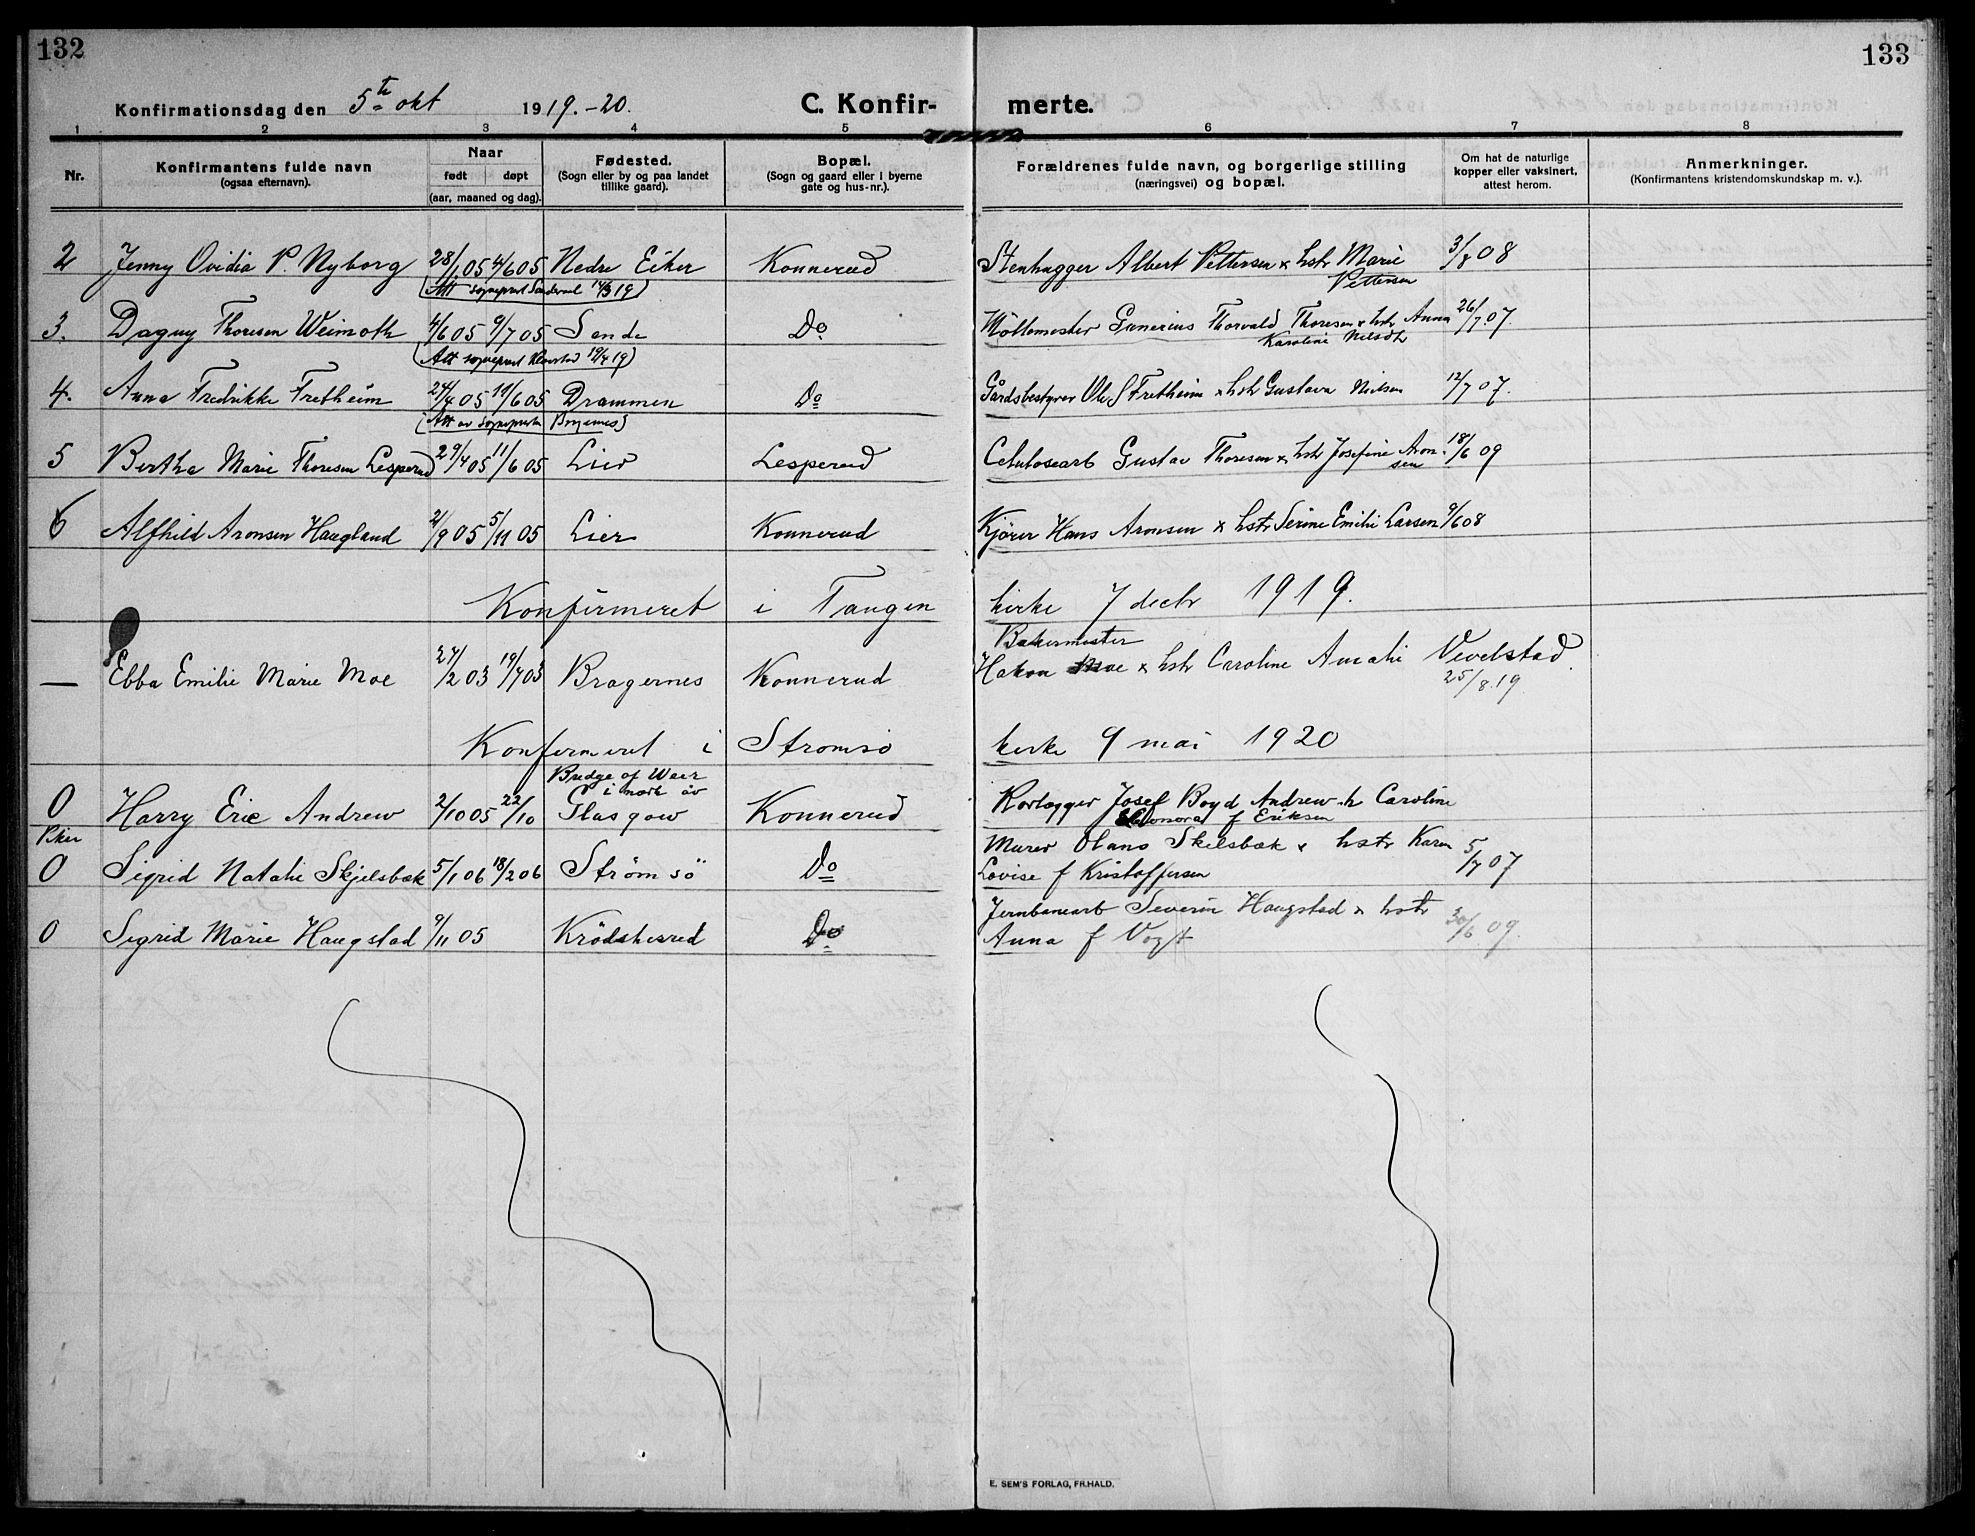 132
133
Konfirmationsdag den 5te okt 1919.-20. C. Konfir- merte.
1 2 3 4 5 6 7 8
Nr.
Konfirmantens fulde navn
(ogsaa efternavn).
Naar
født døpt
(aar, maaned og dag).
Fødested.
(Sogn eller by og paa landet
tillike gaard).
Bopæl.
(Sogn og gaard eller i byerne
gate og hus-nr.).
Forældrenes fulde navn, og borgerlige stilling
(næringsvei) og bopæl.
Om hat de naturlige
kopper eller vaksinert,
attest herom.
Anmerkninger.
(Konfirmantens kristendomskundskap m. v.).
2 Jenny Ovidia P. Nyborg 28/1 05 4/6 05 Nedre Eiker Konnerud Stenhugger Albert Pettersen & hstr Marie 3/8 08
Pettersen
(Att sogneprest 14/3 19)
3. Dagny Thoresen Weimoth 4/6 05 9/7 05 Sande Do Møllemester Gunerius Thorvald Thoresen & hstr Anna 26/7 07
Karoline Nilsdtr
(Att sogneprest 19)
4. Anna Fredrikke Fretheim 24/4 05 19/6 05 Drammen Do Gårdsbestyrer Ole S Fretheim & hstr Gustava Nielsen 12/7 07.
(Att av sogneprest Bragernes)
5 Bertha Marie Thoresen Lesperud 29/4 05 11/6 05 Lier Lesperud Celulosearb Gustav Thoresen & hstr Josefine Aron- 18/6 09
sen
6 Alfhild Aronsen Haugland 2/9 05 5/11 05 Lier Konnerud Kjører Hans Aronsen & hstr Serine Emilie Larsen 9/6 08
Konfirmeret i Tangen kirke 7 decbr 1919.
Bakermester
— Ebba Emilie Marie Moe 27/2 03 19/7 03 Bragernes Konnerud Hakon Moe & hstr Caroline Amalie Vevelstad.
25/8.19.
Konfirmeret i Strømsø kirke 9 mai 1920
Bridge of Weir
i nærh av
0 Harry Eric Andrew 2/10 05 22/10 Glasgow Konnerud Rørlægger Josef Boyd Andrew h Caroline
Eleonora f Eriksen
0 Sigrid Natalie Skjelsbæk 5/1 06 18/2 06 Strømsö Do Murer Skelsbæk & hstr Karen 5/7 07
Lovise f Kristoffersen
0 Sigrid Marie Haugstad 9/11 05 Krödsherred Do Jernbanearb Severin Haugstad & hstr 30/6 09.
Anna f Vogt
E. SEM'S FORLAG, FR.HALD.